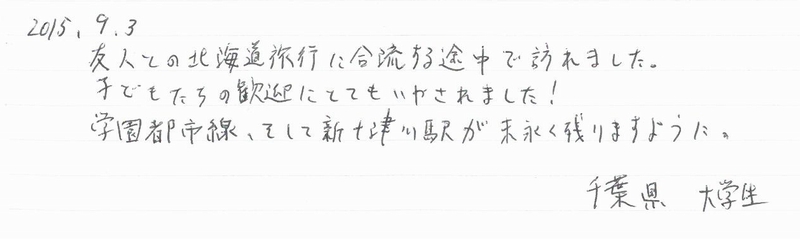 2015.9.3
友人との北海道旅行に合流する途中で訪れました。
子どもたちの歓迎にとてもいやされました！
学園都市線、そして新十津川駅が末永く残りますように。
千葉県 大学生